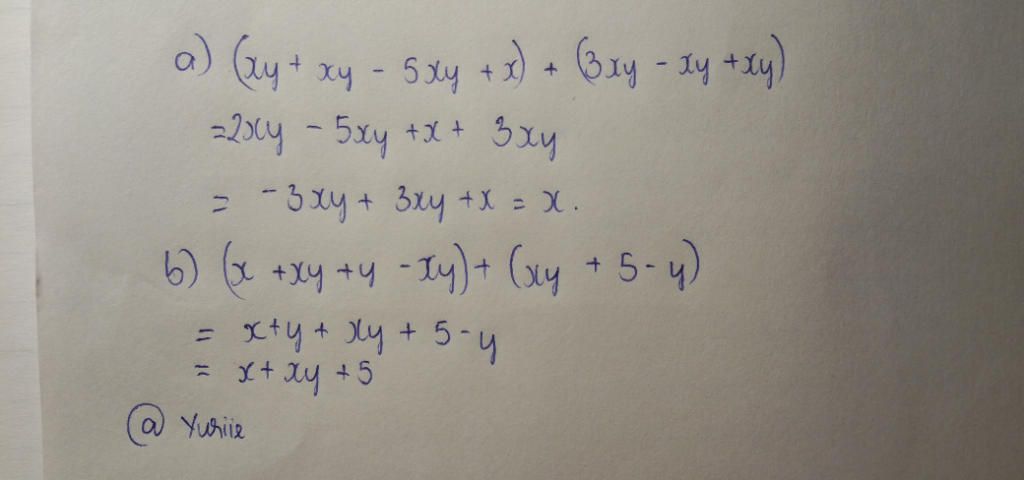 a) (xy + xy - 5xy + x) + (3xy - xy + xy)
=2xy - 5xy + x + 3xy
= -3xy + 3xy + x = x.
b) (x + xy + y - xy) + (xy + 5 - y)
= x + y + xy + 5 - y
= x + xy + 5
@ Yuriie